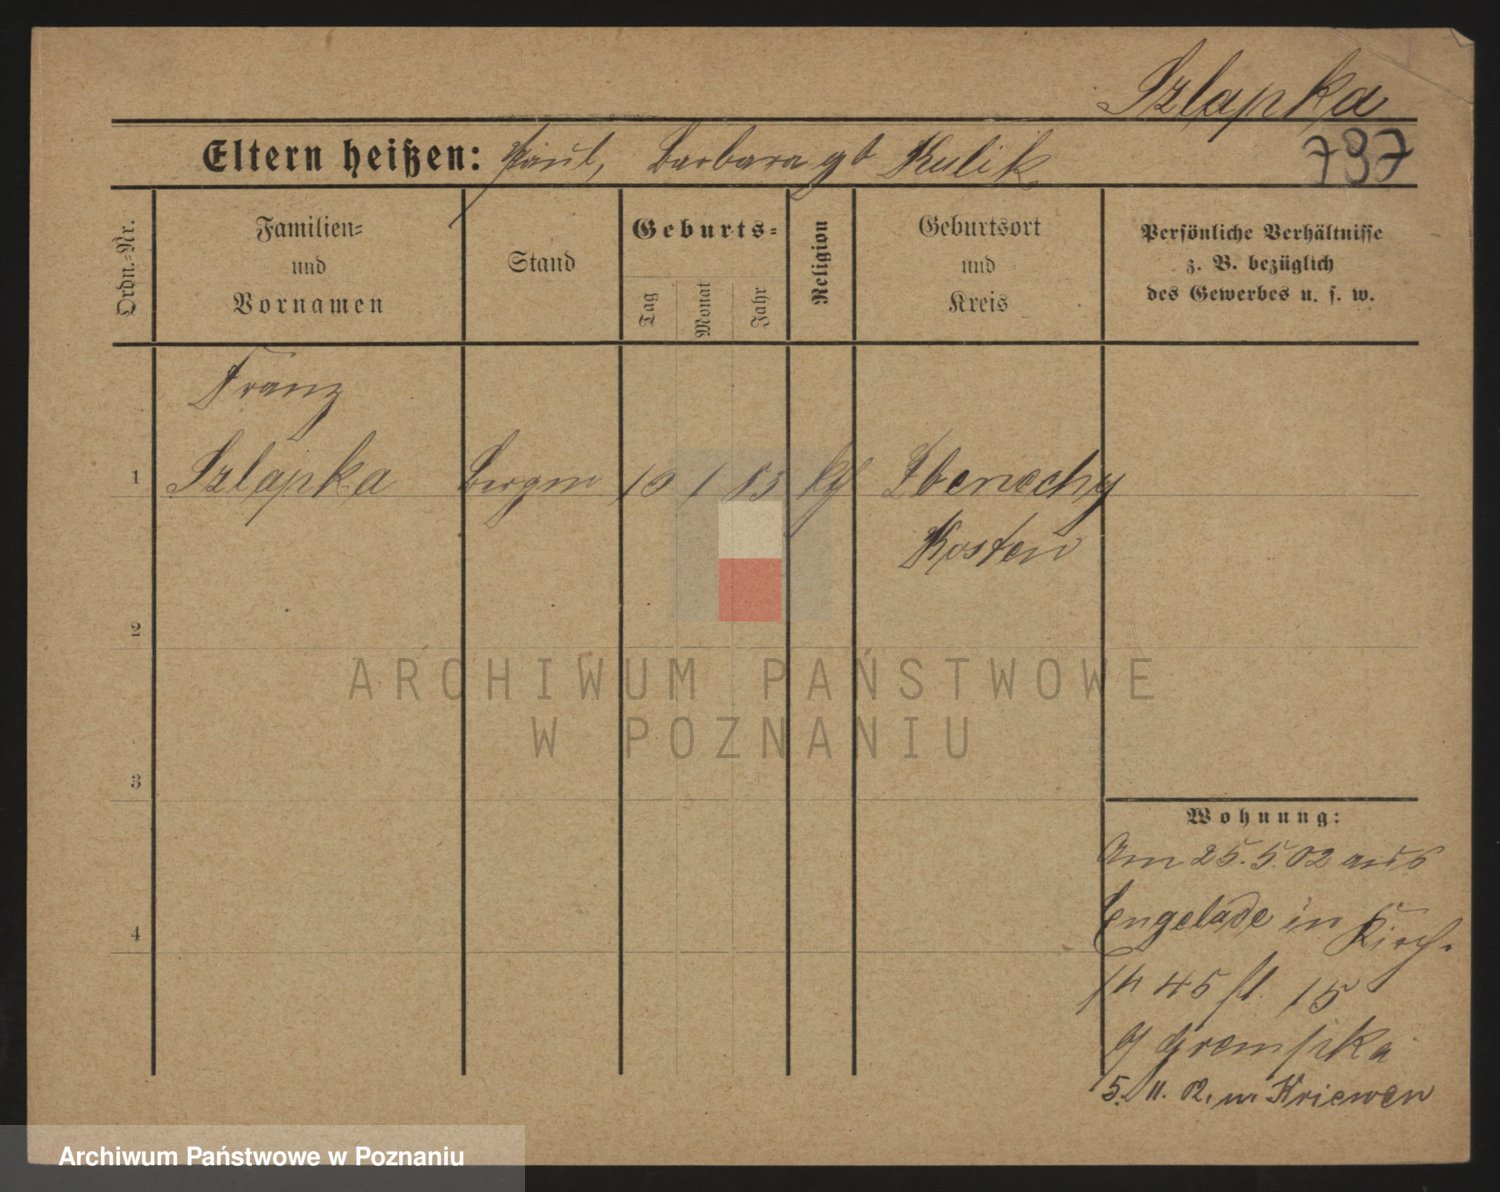 Szlapka
Eltern heißen: Paul, Barbara gb Kulik
737
Ordn.-Nr.
Familien-
und
Vornamen
Stand
Geburts-
Tag
Monat
Jahr
Religion
Geburtsort
und
Kreis
Persönliche Verhältnisse
z. B. bezüglich
des Gewerbes u. s. w.
Franz
1 Szlapka Bergm 10 1 83 kath Zbenechy
Kosten
2
ARCHIWUM PAŃSTWOWE
W POZNANIU
3
4
Wohnung:
Am 25.5.02 aus
Lengelade in Kirch
45 15
5. 11. 02. n. Kriewen
Archiwum Państwowe w Poznaniu